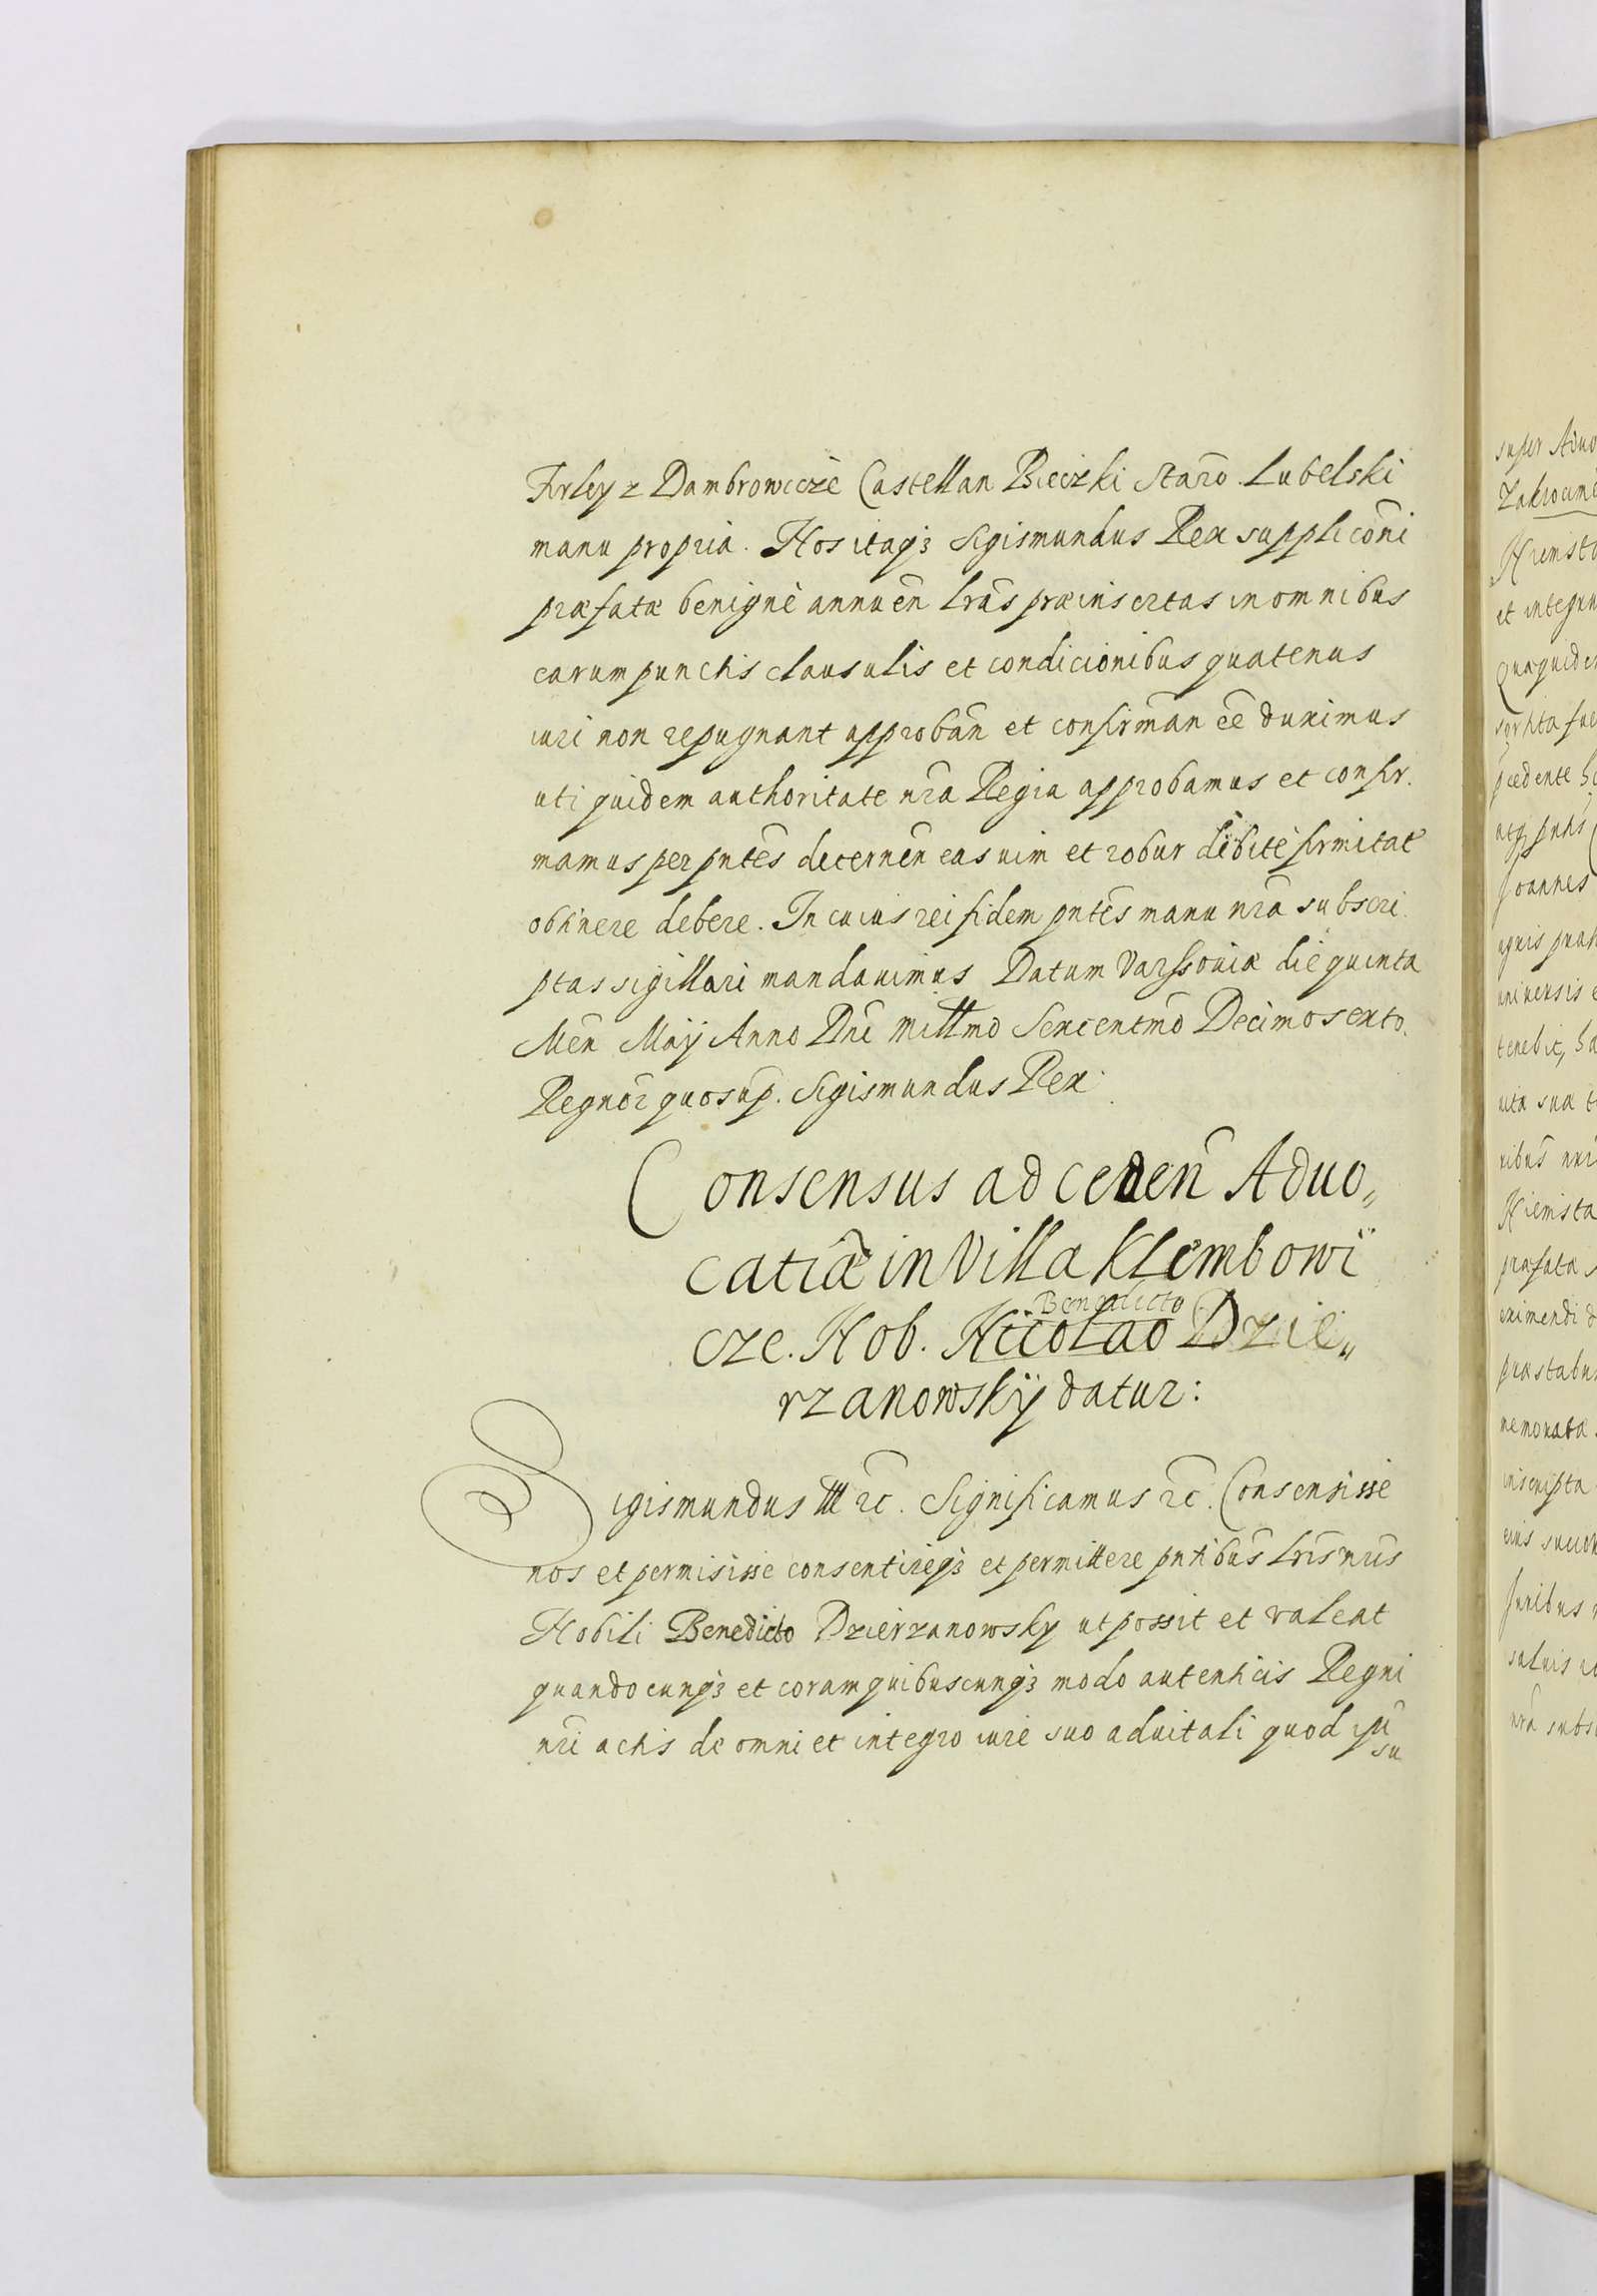 Firley z Dambrowicze Castellan Bieczki Staro. Lubelski
manu propria. Nos itaq3 Sigismundus Rex suppliconi
præfatæ benigne annuen lras præinsertas in omnibus
earum punctis clausulis et condicionibus quatenus
iuri non repugnant approban et confirman ee duximus
uti quidem authoritate nra Regia approbamus et confir.
mamus per pntes decernen eas uim et robur debite firmitat
obtinere debere. In cuius rei fidem pntes manu nra subscri
ptas sigillari mandauimus Datum Varssouiæ die quinta
Men Maÿ Anno Dni millmo Sexcentmo Decimosexto.
Regnor quo sup. Sigismundus Rex.
Consensus ad ceden Aduo„
catiæ in Villa Klembowi
Benedicto
cze. Nob. Nicolao Dzie„
rzanowskÿ datur:
Sigismundus III rc. Significamus rc. Consensisse
nos et permisisse consentireq3 et permittere pntibus lris nris
Nobili Benedicto Dzierzanowsky ut possit et valeat
quandocunq3 et coram quibuscunq3 modo autenticis Regni
nri actis de omni et integro iure suo aduitali quod ipsi
su
super Aduo
Zakrocime
Niemsta
et integru
Quæquide
scripta fue
pcedente
atq pntis
Joannes
uniuersis
tenebit, ha
uita sua
ribus nri
Niemsta
præfata
eximendi d
præstabu
memorata
inscripta
eius succ
Juribus
saluis
nra subs